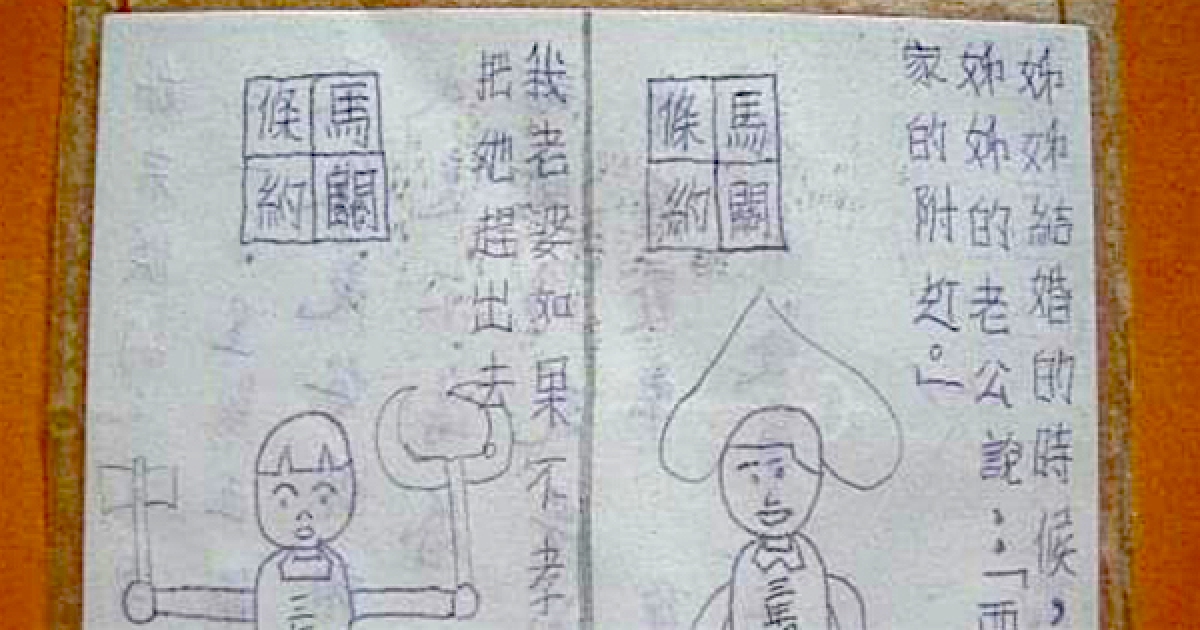 姊姊結婚的時候，
姊姊的老公說：「
家的附近。」
馬關
條約
我老婆如果不孝
把她趕出去
馬關
條約
三
馬
三